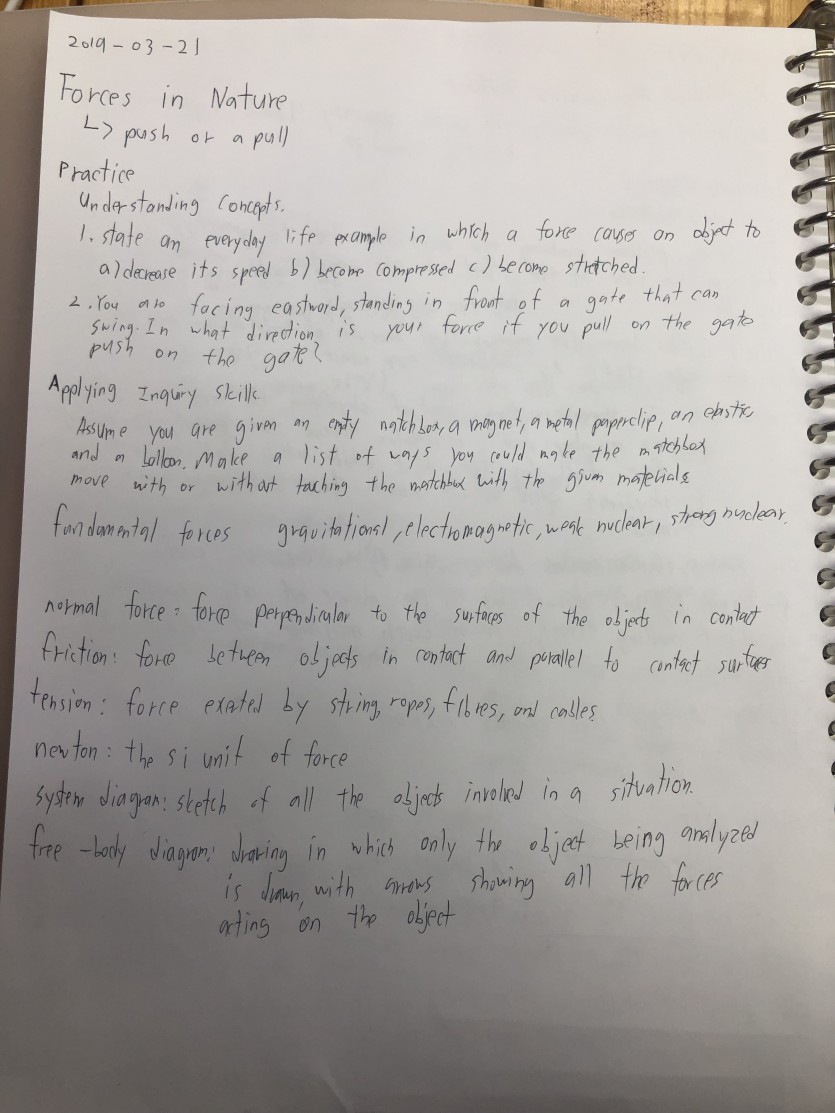 2019-03-21
Forces in Nature
↳ push or a pull
Practice
Understanding Concepts.
1. state an everyday life example in which a force causes an object to
a) decrease its speed b) become compressed c) become stretched.
2. You are facing eastward, standing in front of a gate that can
swing. In what direction is your force if you pull on the gate
push on the gate?
Applying Inquiry Skills
Assume you are given an empty matchbox, a magnet, a metal paperclip, an elastic
and a balloon. Make a list of ways you could make the matchbox
move with or without touching the matchbox with the given materials
fundamental forces gravitational, electromagnetic, weak nuclear, strong nuclear.
normal force: force perpendicular to the surfaces of the objects in contact
friction: force between objects in contact and parallel to contact surfaces
tension: force exerted by string, ropes, fibres, and cables
newton: the si unit of force
system diagram: sketch of all the objects involved in a situation.
free-body diagram: drawing in which only the object being analyzed
is drawn, with arrows showing all the forces
acting on the object